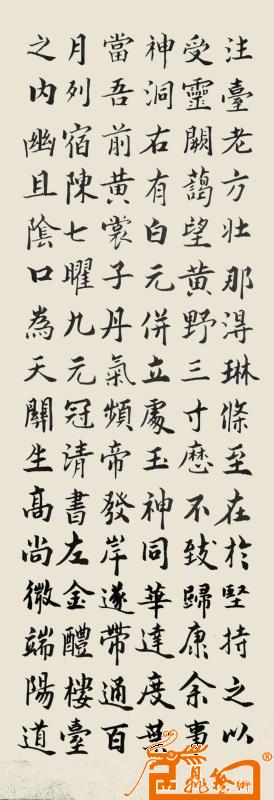 注臺老方壯那得琳條至在於堅持之以
受靈闕藹望黃野三寸應不致歸康余事
神洞右有白元併立處玉神同華達度英
當吾前黃裳子丹氣頻帝發岸遂帶通百
月列宿陳七曜九元冠清書左金醴樓臺
之內幽且陰口為天關生高尚微端陽道